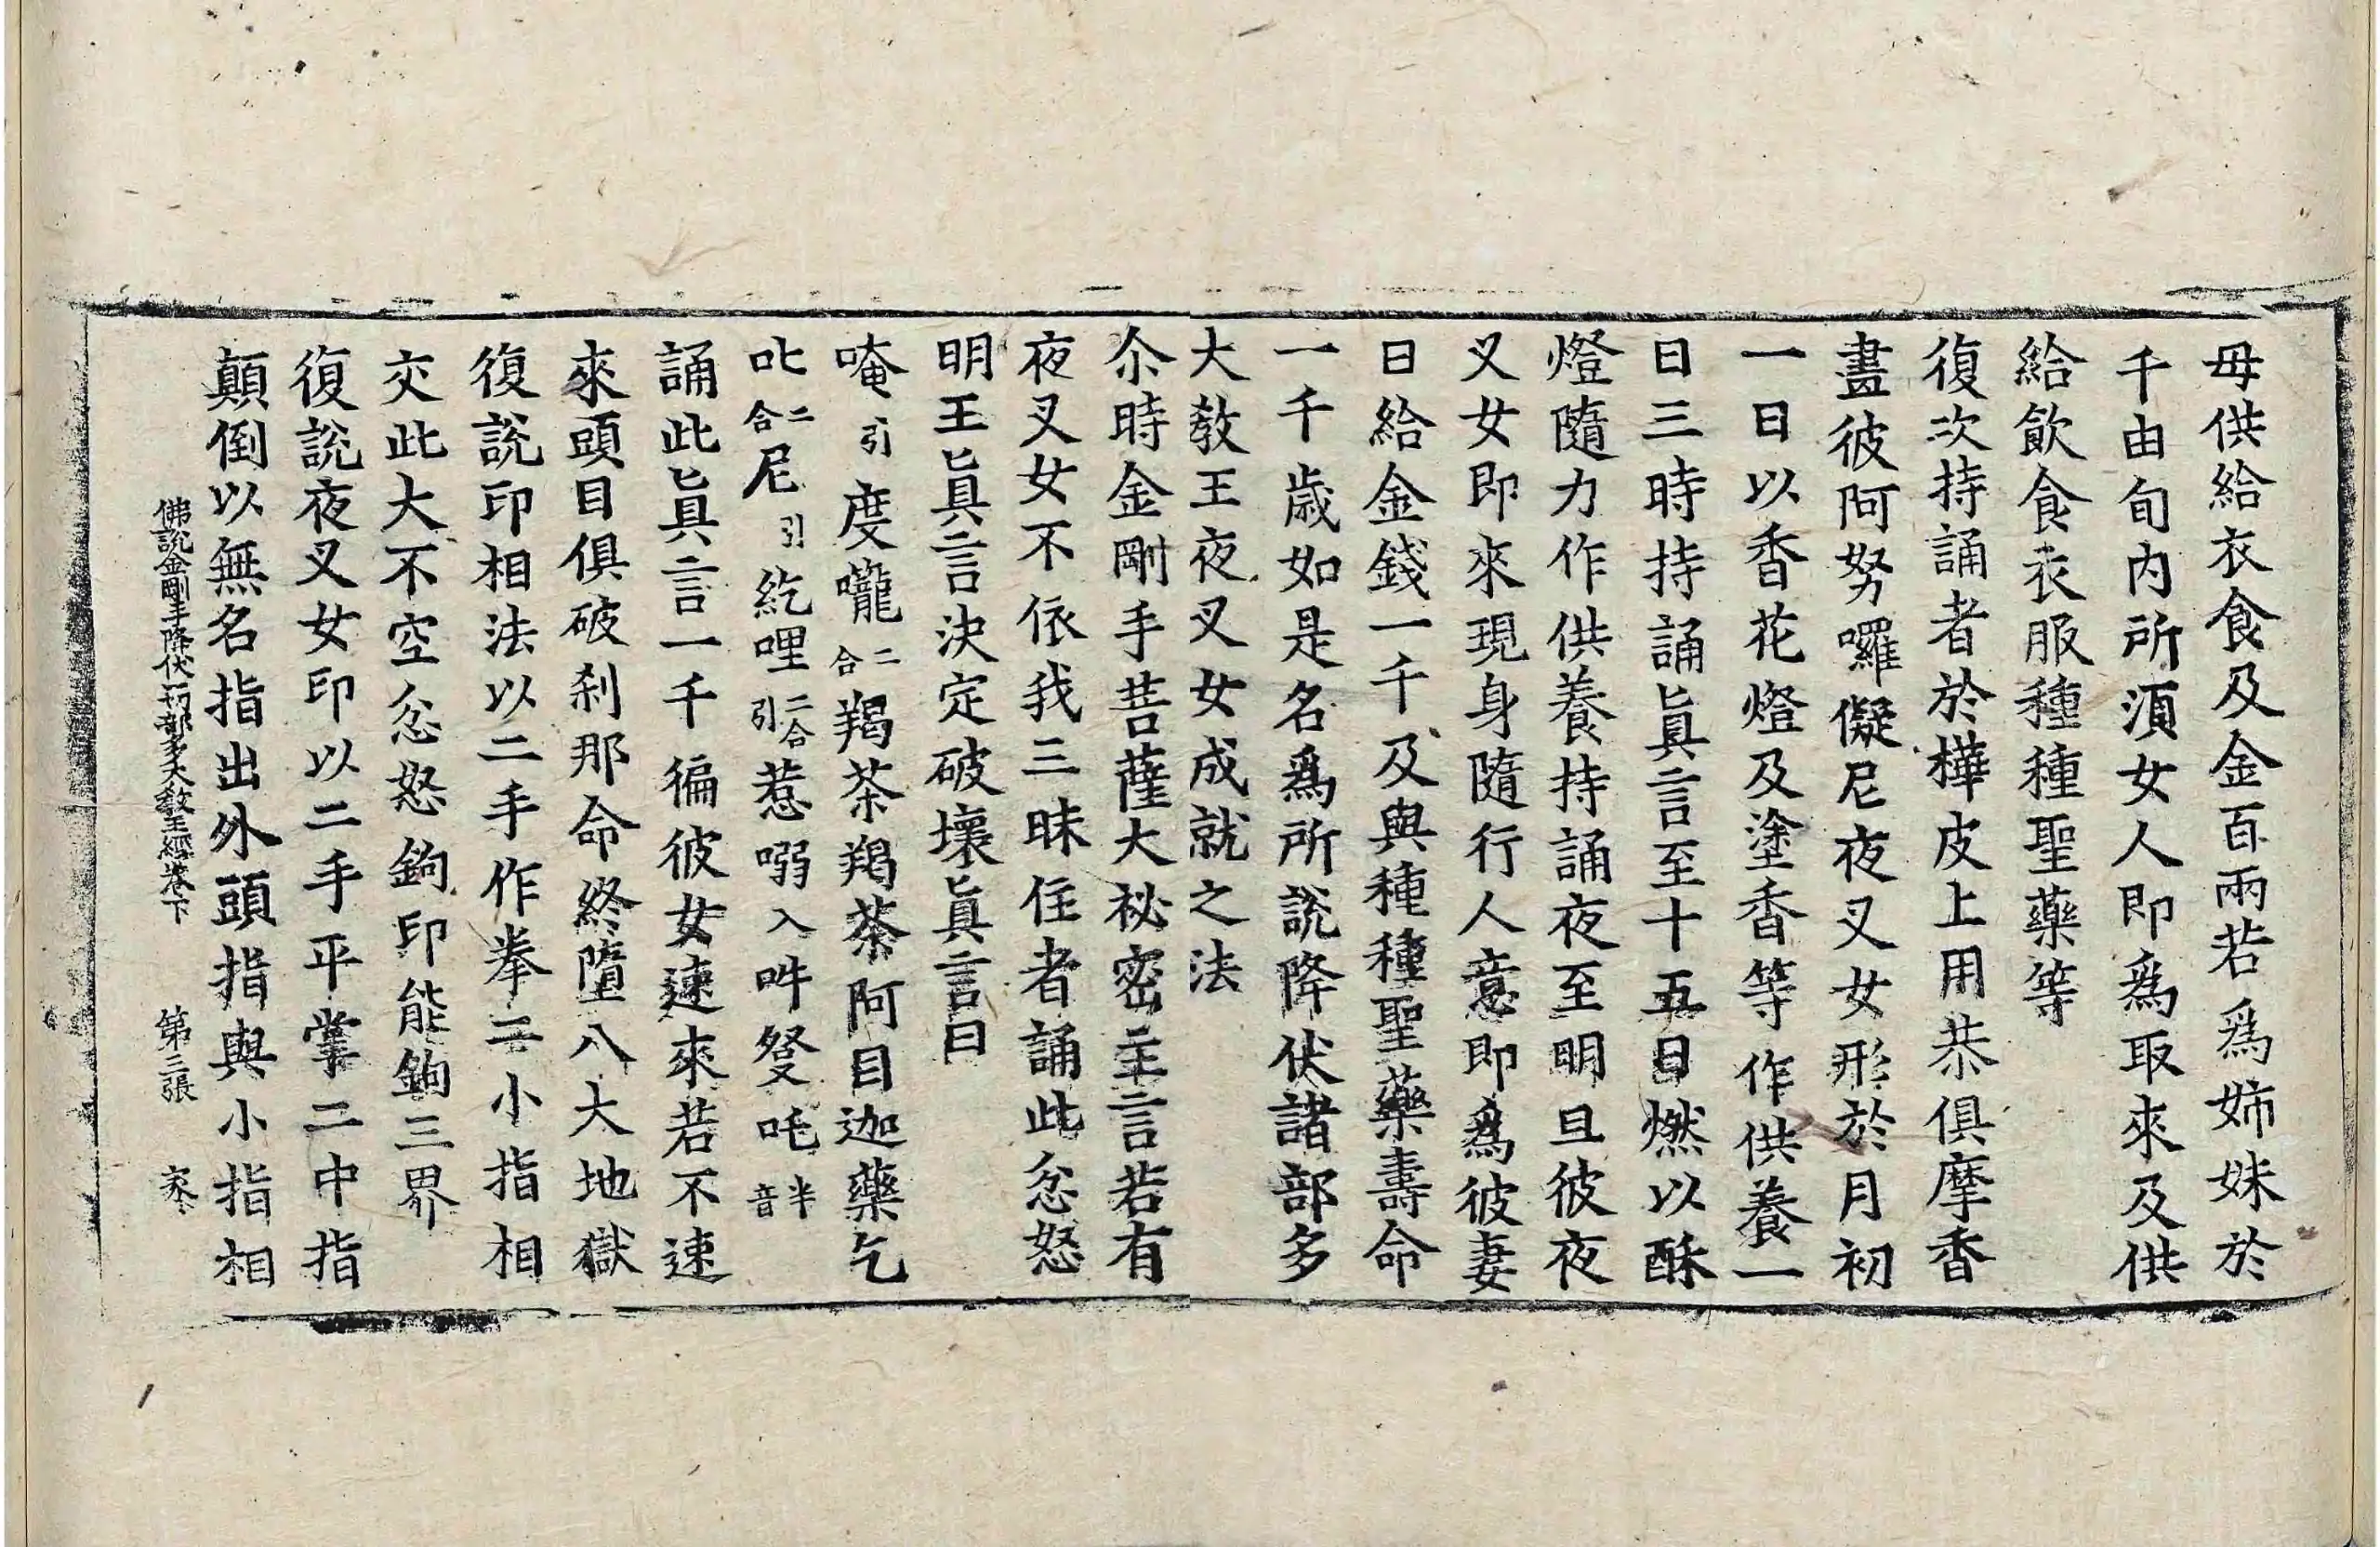 母供給衣食及金百兩若爲姉妹於
千由旬内所湏女人即爲取來及供
給飮食衣服種種聖藥等
復次持誦者於樺皮上用恭俱摩香
畫彼阿努囉儗尼夜叉女形於月初
一日以香花燈及塗香等作供養一
日三時持誦眞言至十五日燃以酥
燈隨力作供養持誦夜至明旦彼夜
叉女即來現身隨行人意即爲彼妻
日給金錢一千及與種種聖藥壽命
一千歳如是名爲所說降伏諸部多
大敎王夜叉女成就之法
尒時金剛手菩薩大祕密主言若有
夜叉女不依我三昧住者誦此忿怒
明王眞言決定破壞眞言曰
唵引度嚨二合羯荼羯荼阿目迦藥乞
叱二合尼引紇哩二合引惹嗋入吽發吒半音
誦此眞言一千徧彼女速來若不速
來頭目俱破刹那命終墮八大地獄
復說印相法以二手作拳二小指相
交此大不空忿怒鉤印能鉤三界
復說夜叉女印以二手平掌二中指
顛倒以無名指出外頭指與小指相
佛說金剛手降伏一切部多大敎王經卷下 第三張 家